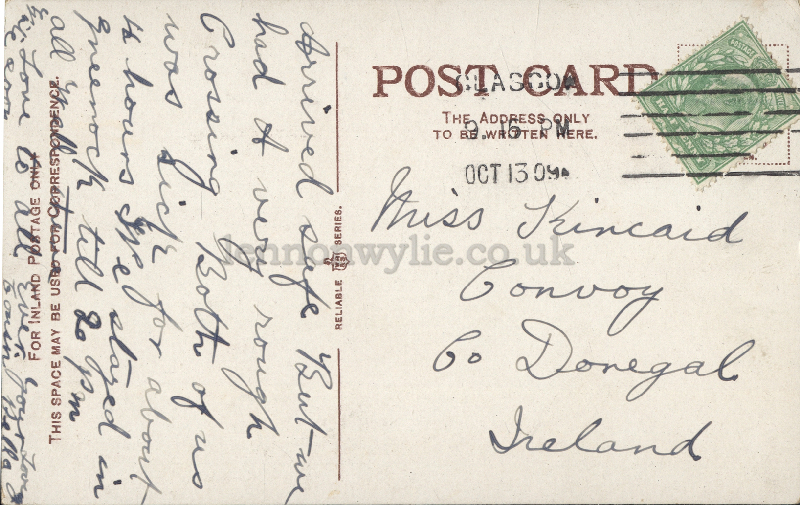 POST CARD
THE ADDRESS ONLY
TO BE WRITTEN HERE.
GLASGOW
9.15 PM
OCT 13 09
Miss Kincaid
Convoy
Co Donegal
Ireland
RELIABLE SERIES.
FOR INLAND POSTAGE ONLY
THIS SPACE MAY BE USED FOR CORRESPONDENCE.
Arrived safe But we
had A very rough
Crossing Both of us
was sick for about
4 hours We stayed in
greenock till 20 pm
all
Love to all ever your loving
lennonwylie.co.uk